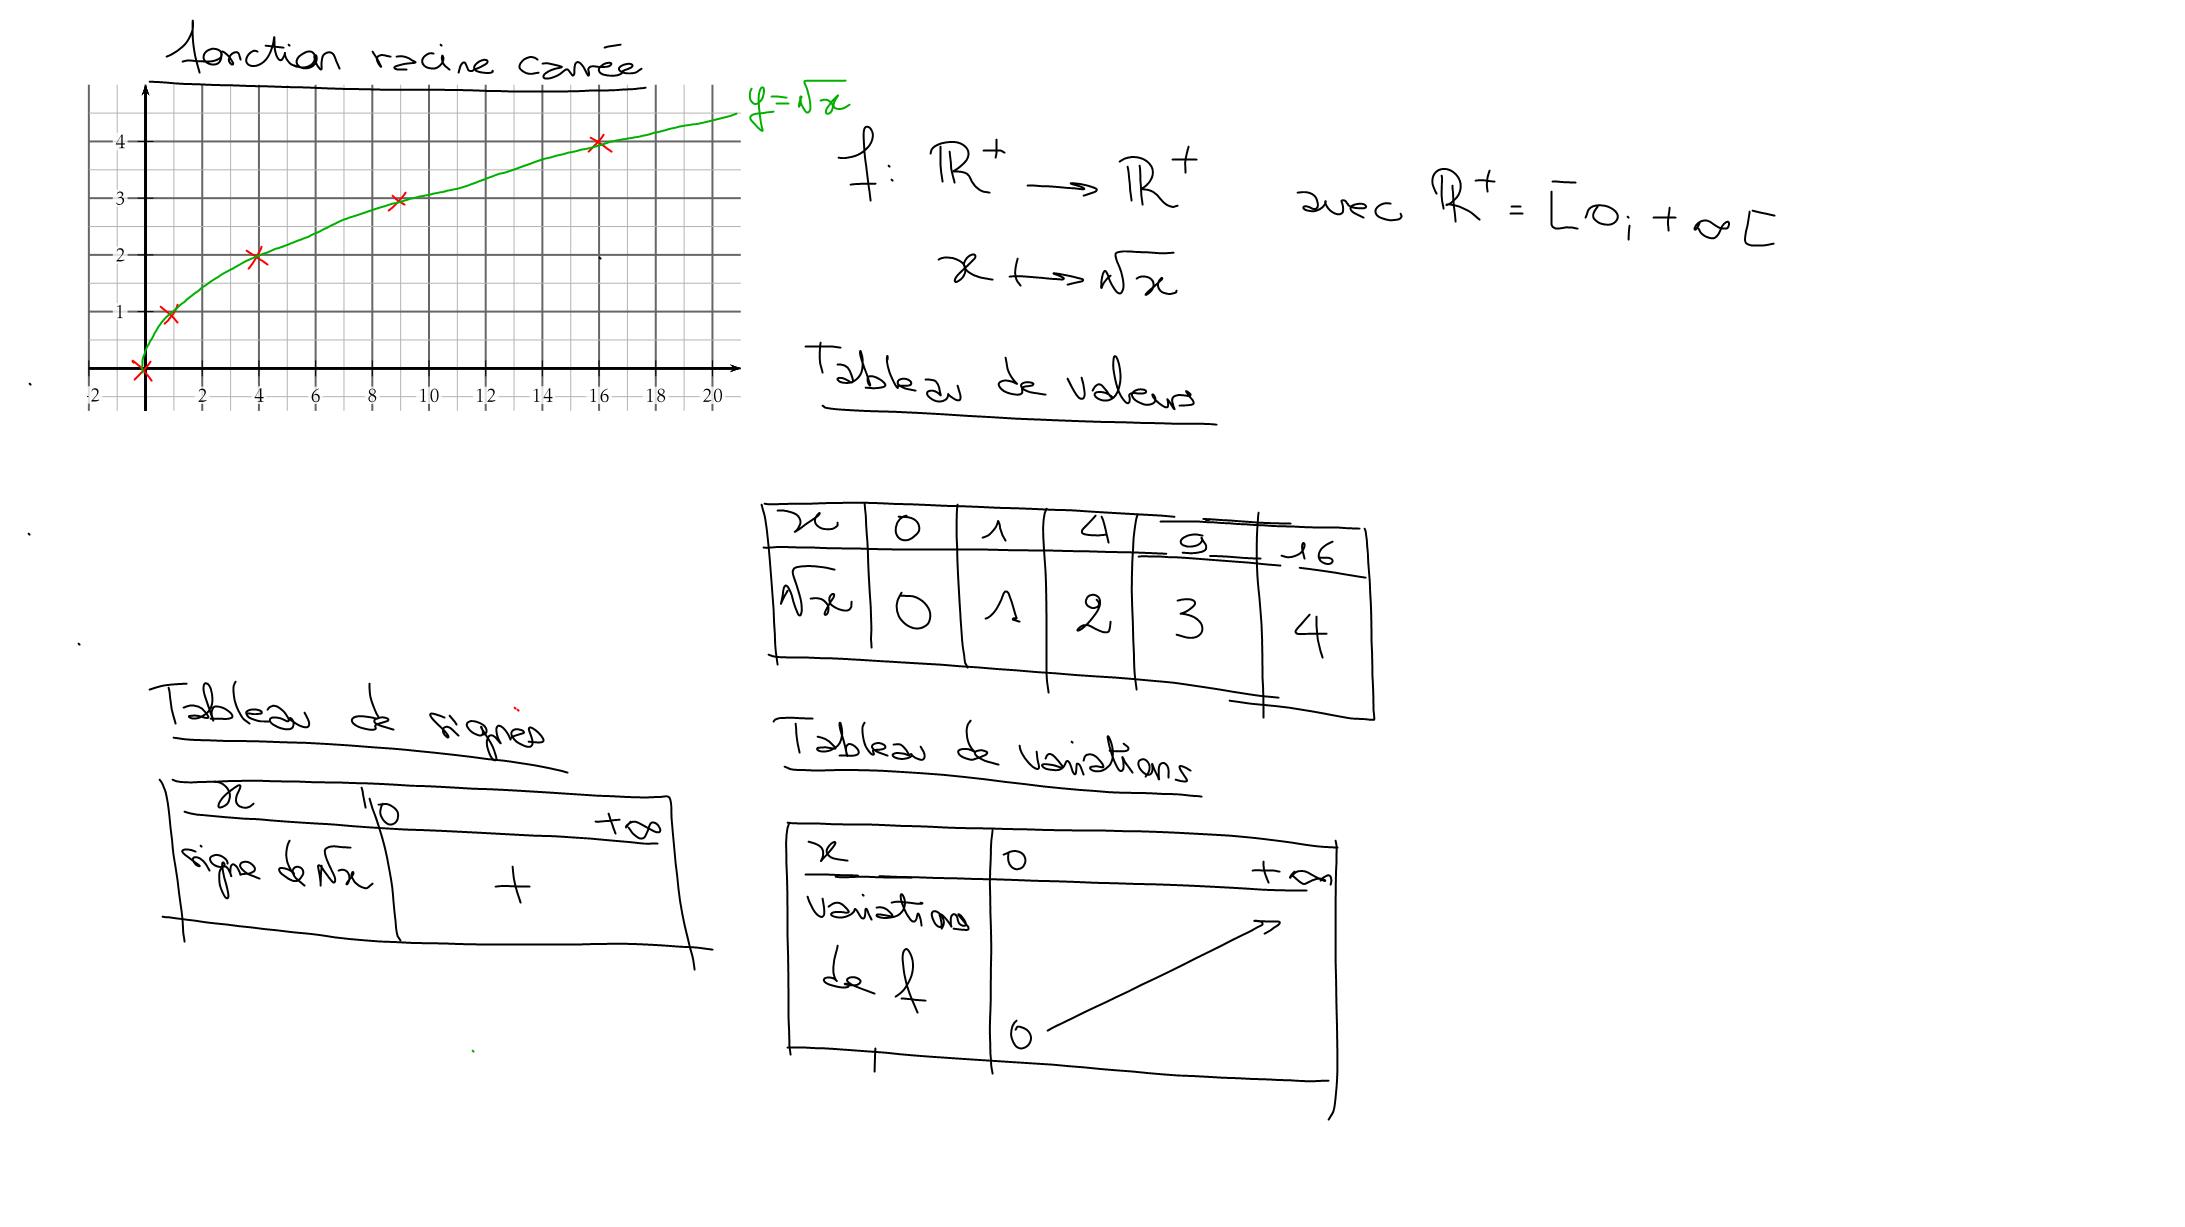 fonction racine carrée
y = √x
4
3
2
1
-2 2 4 6 8 10 12 14 16 18 20
f : ℝ⁺ → ℝ⁺ avec ℝ⁺ = [0 ; +∞[
x ↦ √x
Tableau de valeurs
x 0 1 4 9 16
√x 0 1 2 3 4
Tableau de signes
x 0 +∞
signe de √x +
Tableau de variations
x 0 +∞
variations
de f
0